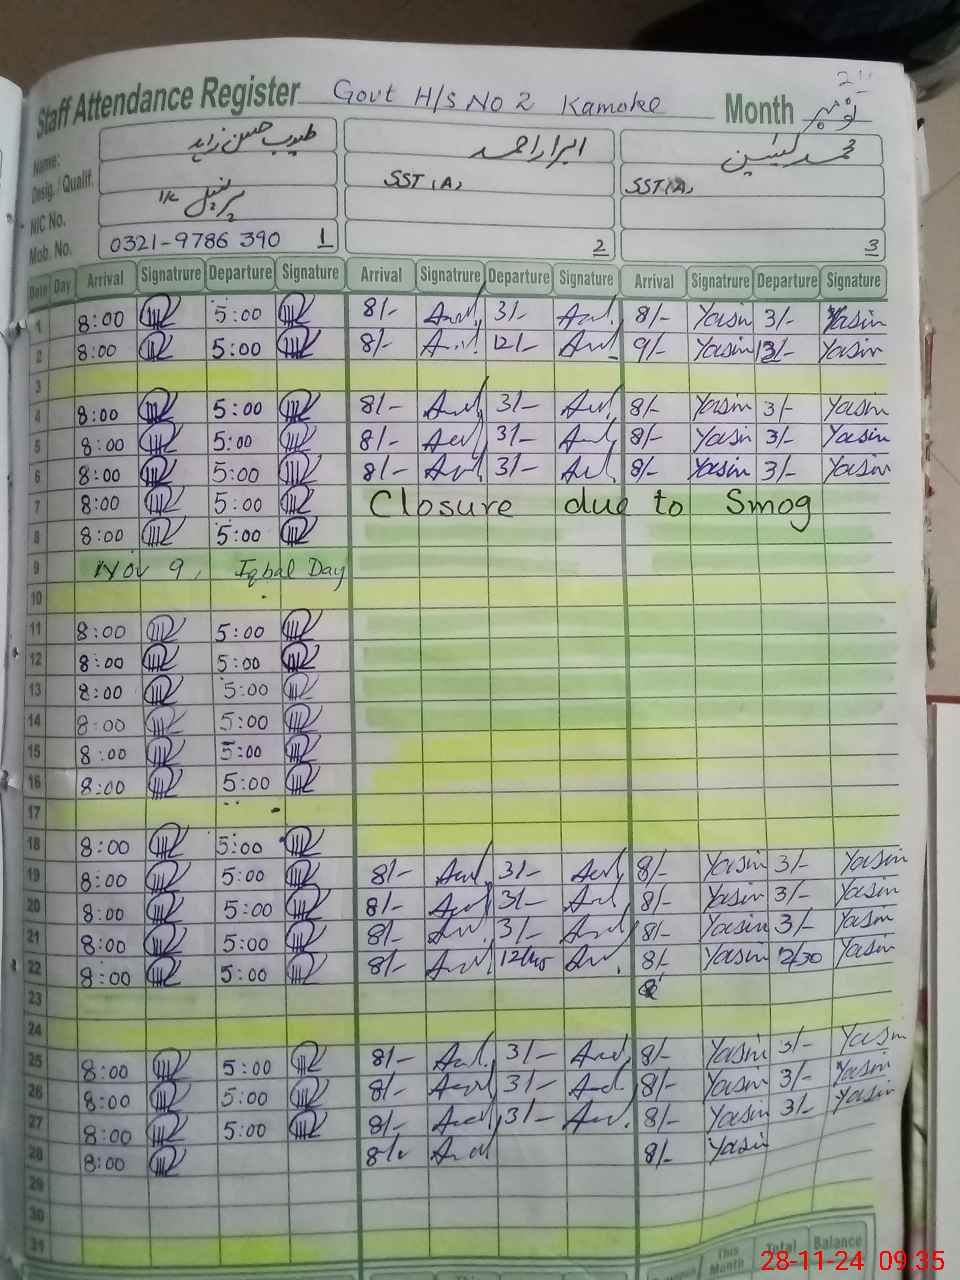 Staff Attendance Register Govt H/S No 2 Kamoke Month نومبر
Name: طیب حسین زاہد ابرار احمد محمد یٰسین
Desig. / Qualif. SST (A) SST (A)
NIC No. پرنسپل I/C
Mob. No. 0321-9786390 1 2 3
Date Day Arrival Signatrure Departure Signature Arrival Signatrure Departure Signature Arrival Signatrure Departure Signature
1 8:00 5:00 8/- 3/- 8/- Yasin 3/- Yasin
2 8:00 5:00 8/- 12/- 9/- Yasin 3/- Yasin
3
4 8:00 5:00 8/- 3/- 8/- Yasin 3/- Yasin
5 8:00 5:00 8/- 3/- 8/- Yasin 3/- Yasin
6 8:00 5:00 8/- 3/- 8/- Yasin 3/- Yasin
7 8:00 5:00 Closure due to Smog
8 8:00 5:00
9 Nov 9, Iqbal Day
10
11 8:00 5:00
12 8:00 5:00
13 8:00 5:00
14 8:00 5:00
15 8:00 5:00
16 8:00 5:00
17
18 8:00 5:00
19 8:00 5:00 8/- 3/- 8/- Yasin 3/- Yasin
20 8:00 5:00 8/- 3/- 8/- Yasin 3/- Yasin
21 8:00 5:00 8/- 3/- 8/- Yasin 3/- Yasin
22 8:00 5:00 8/- 8/- Yasin Yasin
23
24
25 8:00 5:00 8/- 3/- 8/- Yasin 3/- Yasin
26 8:00 5:00 8/- 3/- 8/- Yasin 3/- Yasin
27 8:00 5:00 8/- 3/- 8/- Yasin 3/- Yasin
28 8:00 8/- 8/- Yasin
29
30
31
This Month Total Balance
28-11-24 09:35